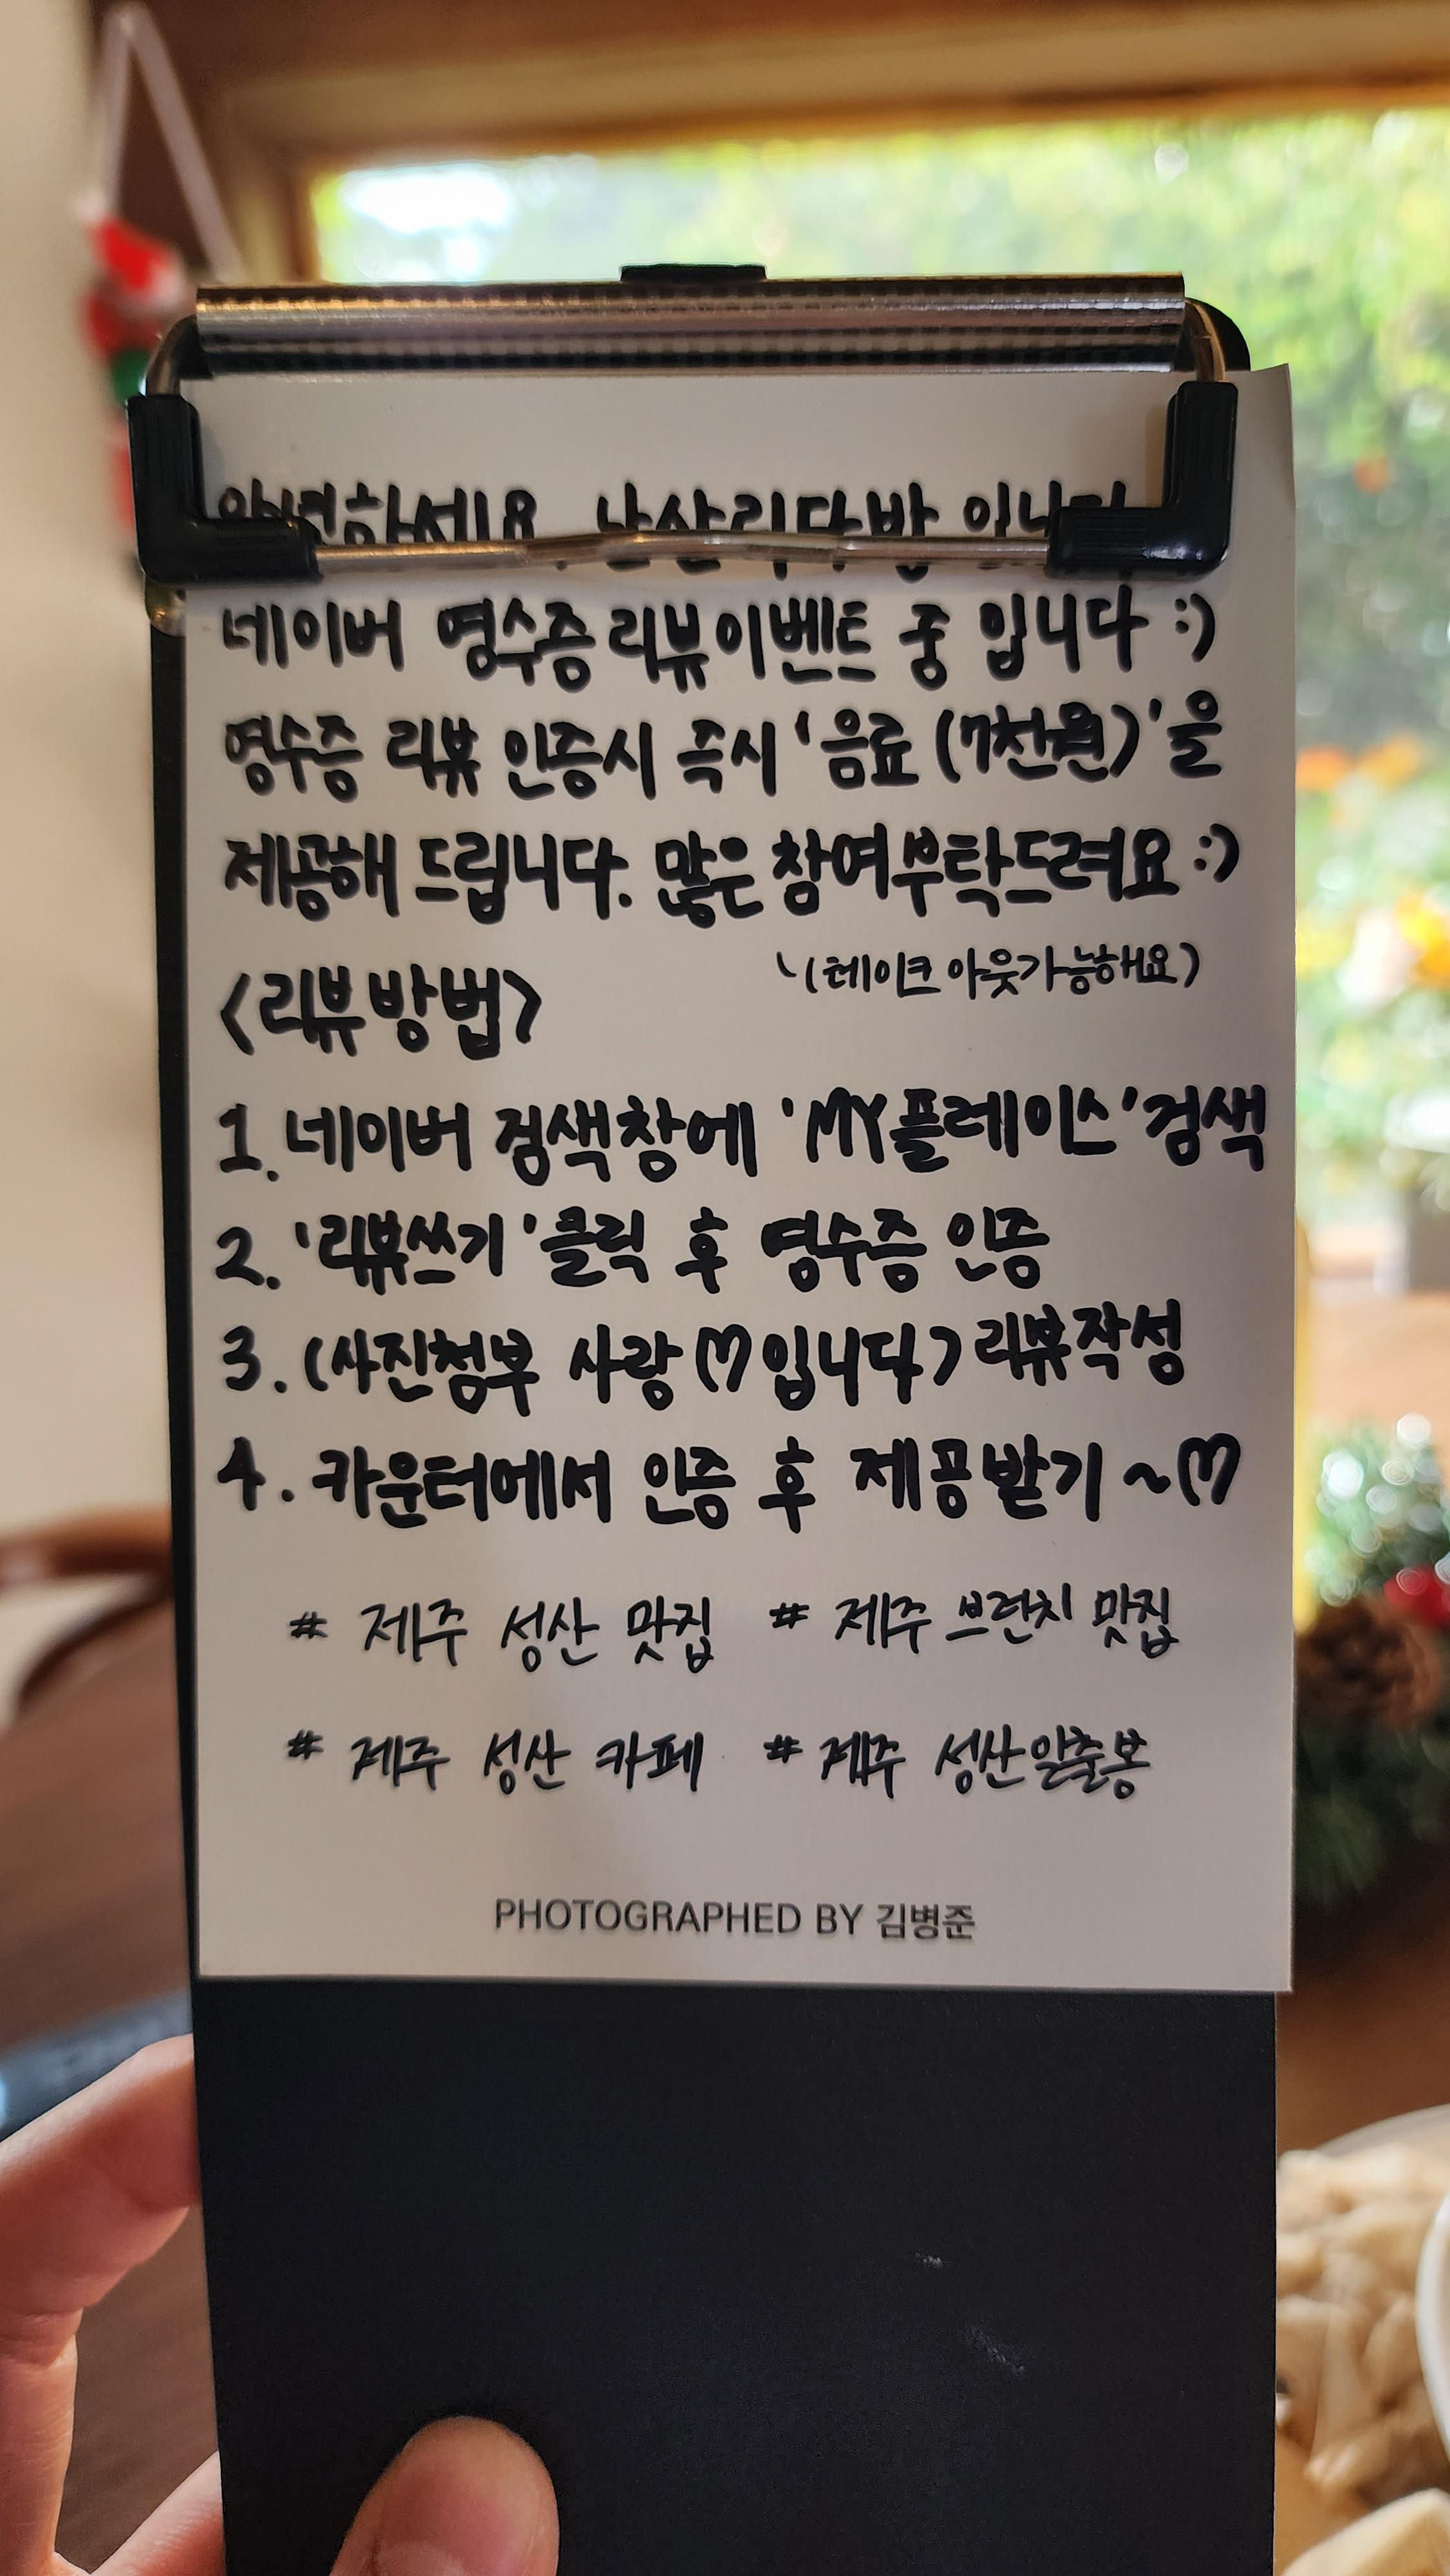 안녕하세요 난산리다방 입니다
네이버 영수증 리뷰이벤트 중 입니다 :)
영수증 리뷰 인증시 즉시 '음료 (7천원)'을
제공해 드립니다. 많은 참여부탁드려요 :)
(테이크 아웃가능해요)
<리뷰방법>
1. 네이버 검색창에 'MY플레이스' 검색
2. '리뷰쓰기' 클릭 후 영수증 인증
3. (사진첨부 사랑♡입니다) 리뷰작성
4. 카운터에서 인증 후 제공받기 ~♡
# 제주 성산 맛집 # 제주 브런치 맛집
# 제주 성산 카페 # 제주 성산일출봉
PHOTOGRAPHED BY 김병준